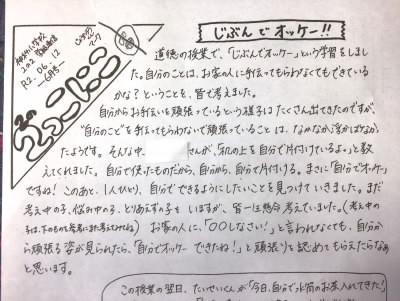 じぶんでオッケー!!
にこにこ
道徳の授業で、「じぶんでオッケー」という学習をしまし
た。自分のことは、お家の人に手伝ってもらわなくてもできている
かな？ということを、皆で考えました。
自分からお手伝いを頑張っているという様子はたくさん出てきたのですが、
“自分のこと”を手伝ってもらわないで頑張っていることは、なかなか浮かばなか
ったようです。そんな中、 さんが、「机の上を自分で片付けているよ。」と教
えてくれました。自分で使ったものだから、自分から、自分で片付ける。まさに「自分でオッケー」
ですね！このあと、1人ひとり、自分でできるようにしたいことを見つけていきました。まだ
考え中の子、悩み中の子、とりあえずの子もいますが、皆一生懸命考えていました。（考え中の
子は、下のものを参考にまた考えようね）お家の人に、「〇〇しなさい！」と言われなくても、自分か
ら頑張る姿が見られたら、「自分でオッケーできたね！」と頑張りを認めてもらえたらなあ
と思います。
この授業の翌日、たいせいくんが「今日、自分で水筒のお茶入れてきた！